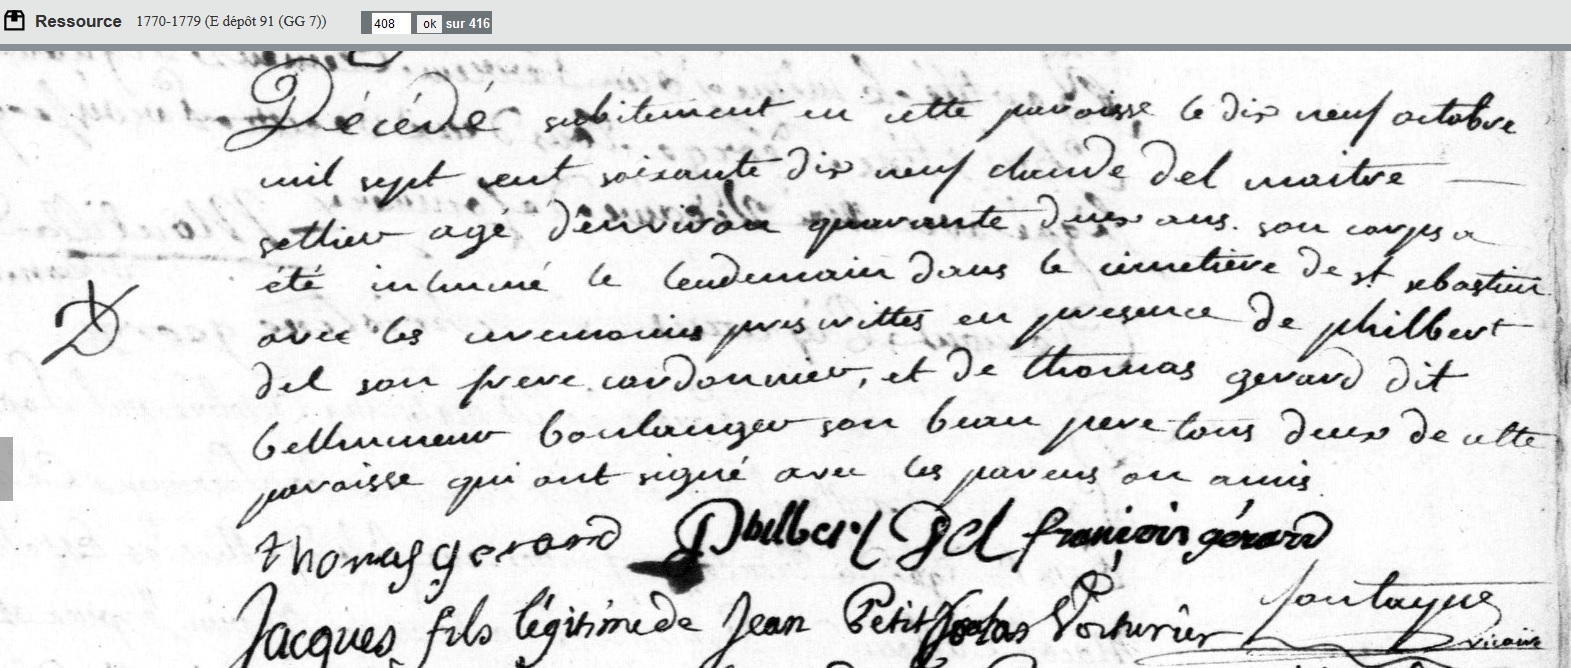 Ressource 1770-1779 (E dépôt 91 (GG 7)) 408 ok sur 416
Décédé subitement en cette paroisse le dix neuf octobre
mil sept cent soixante dix neuf claude del maitre
sellier agé d'environ quarante deux ans. son corps a
été inhumé le lendemain dans le cimetiere de st sebastien
avec les ceremonies prescrittes en presence de philbert
del son frere cordonnier, et de thomas gerard dit
bellhumeur boulanger son beau pere tous deux de cette
paroisse qui ont signé avec les parens ou amis
D
thomas gerard Philbert Del françois gérard
fontayne
vicaire
Jacques fils légitime de Jean Petit Voiturier